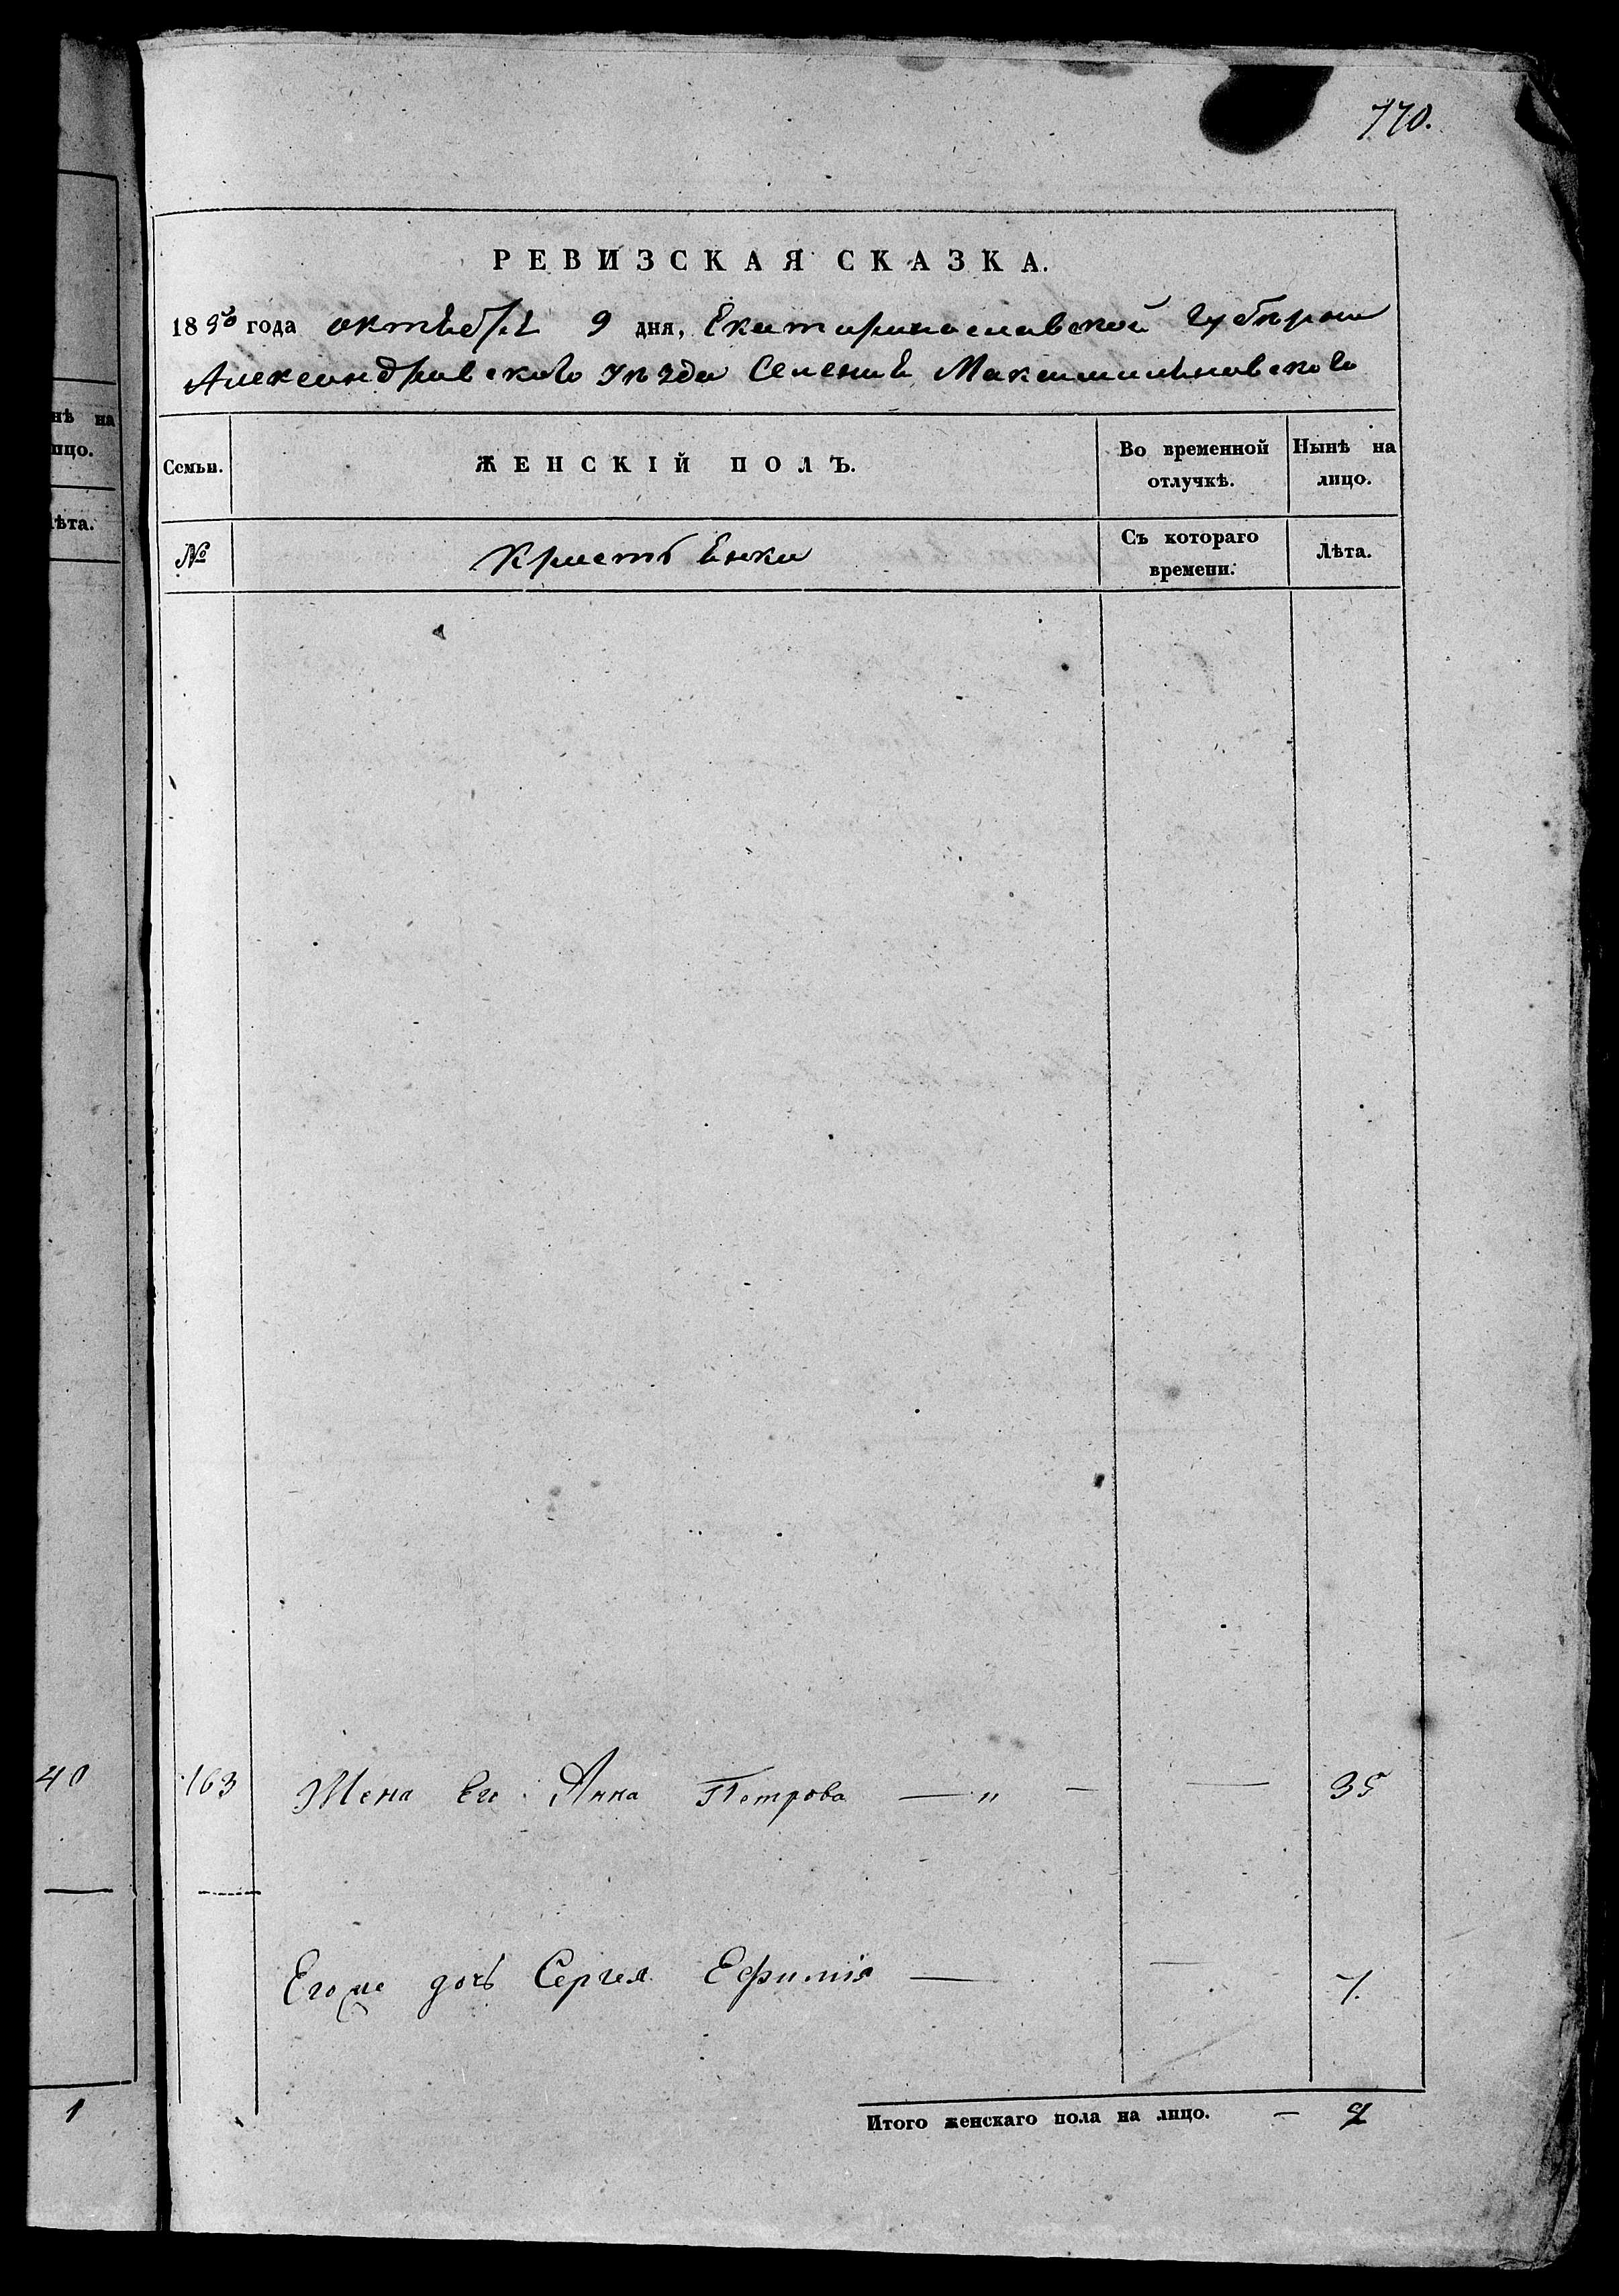 770.
РЕВИЗСКАЯ СКАЗКА.
1850 года октября 9 дня, Екатеринославской Губернии
Александровского Уезда Селения Максимильяновского
нѣ на
лицо.
Семьи.
ЖЕНСКІЙ ПОЛЪ.
Во временной отлучкѣ.
Нынѣ на лицо.
лѣта.
№
Крестьянки
Съ котораго времени.
Лѣта.
40
163 Жена Его Анна Петрова — " — — 35
Егоже дочь Сергея Ефимия — — 7.
1
Итого женскаго пола на лицо. — 2